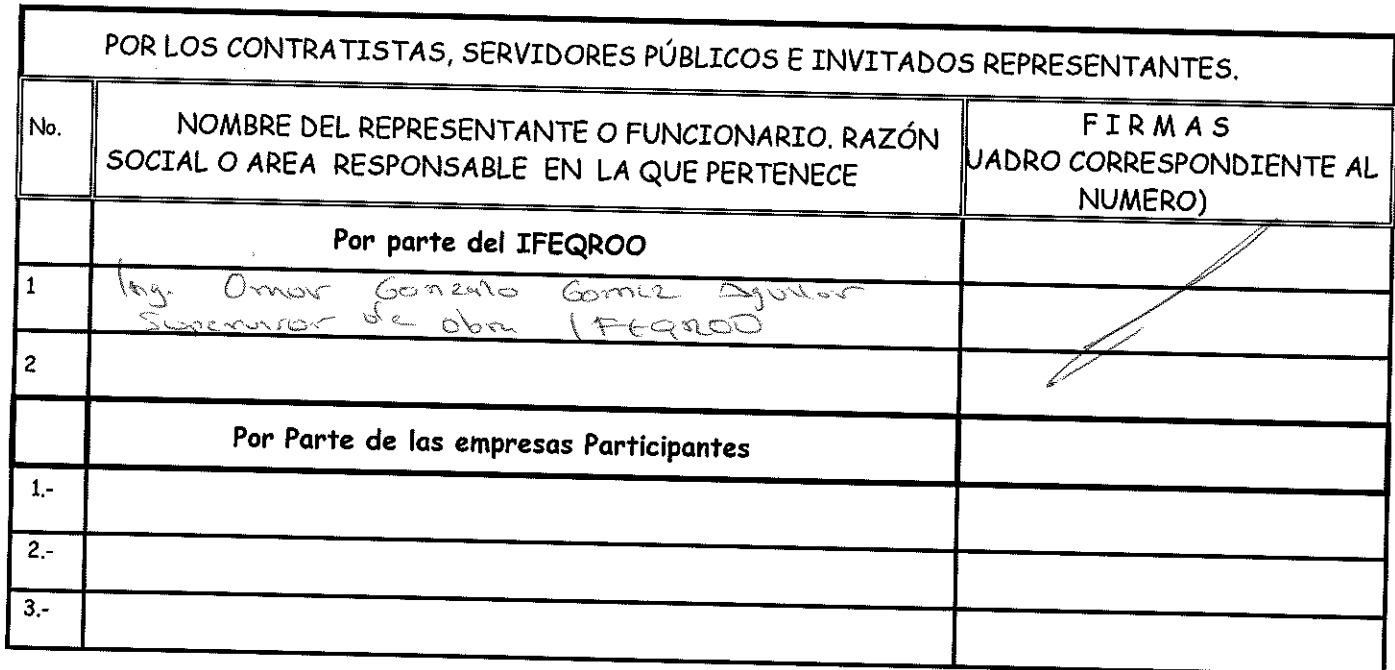 POR LOS CONTRATISTAS, SERVIDORES PÚBLICOS E INVITADOS REPRESENTANTES.
No.
NOMBRE DEL REPRESENTANTE O FUNCIONARIO. RAZÓN
SOCIAL O AREA RESPONSABLE EN LA QUE PERTENECE
F I R M A S
UADRO CORRESPONDIENTE AL
NUMERO)
Por parte del IFEQROO
1
Ing. Omar Gonzalo Gomez Aguilar
Supervisor de obra IFEQROO
2
Por Parte de las empresas Participantes
1.-
2.-
3.-